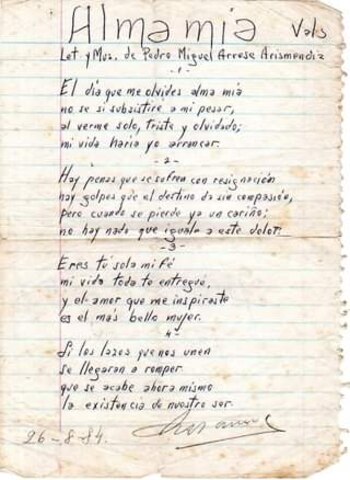 Alma mia Vals
Let y Mus. de Pedro Miguel Arrese Arismendiz
-1-
El día que me olvides alma mia
no se si subsistire a mi pesar,
al verme solo, triste y olvidado;
mi vida haria yo arrancar.
-2-
Hay penas que se sufren con resignación
hay golpes que el destino da sin compasión,
pero cuando se pierde ya un cariño;
no hay nada que iguale a este dolor.
-3-
Eres tú sola mi fé
mi vida toda te entregué,
y el amor que me inspiraste
es el más bello mujer.
4-
Si los lazos que nos unen
se llegaran a romper
que se acabe ahora mismo
la existencia de nuestro ser.
26-8-84.